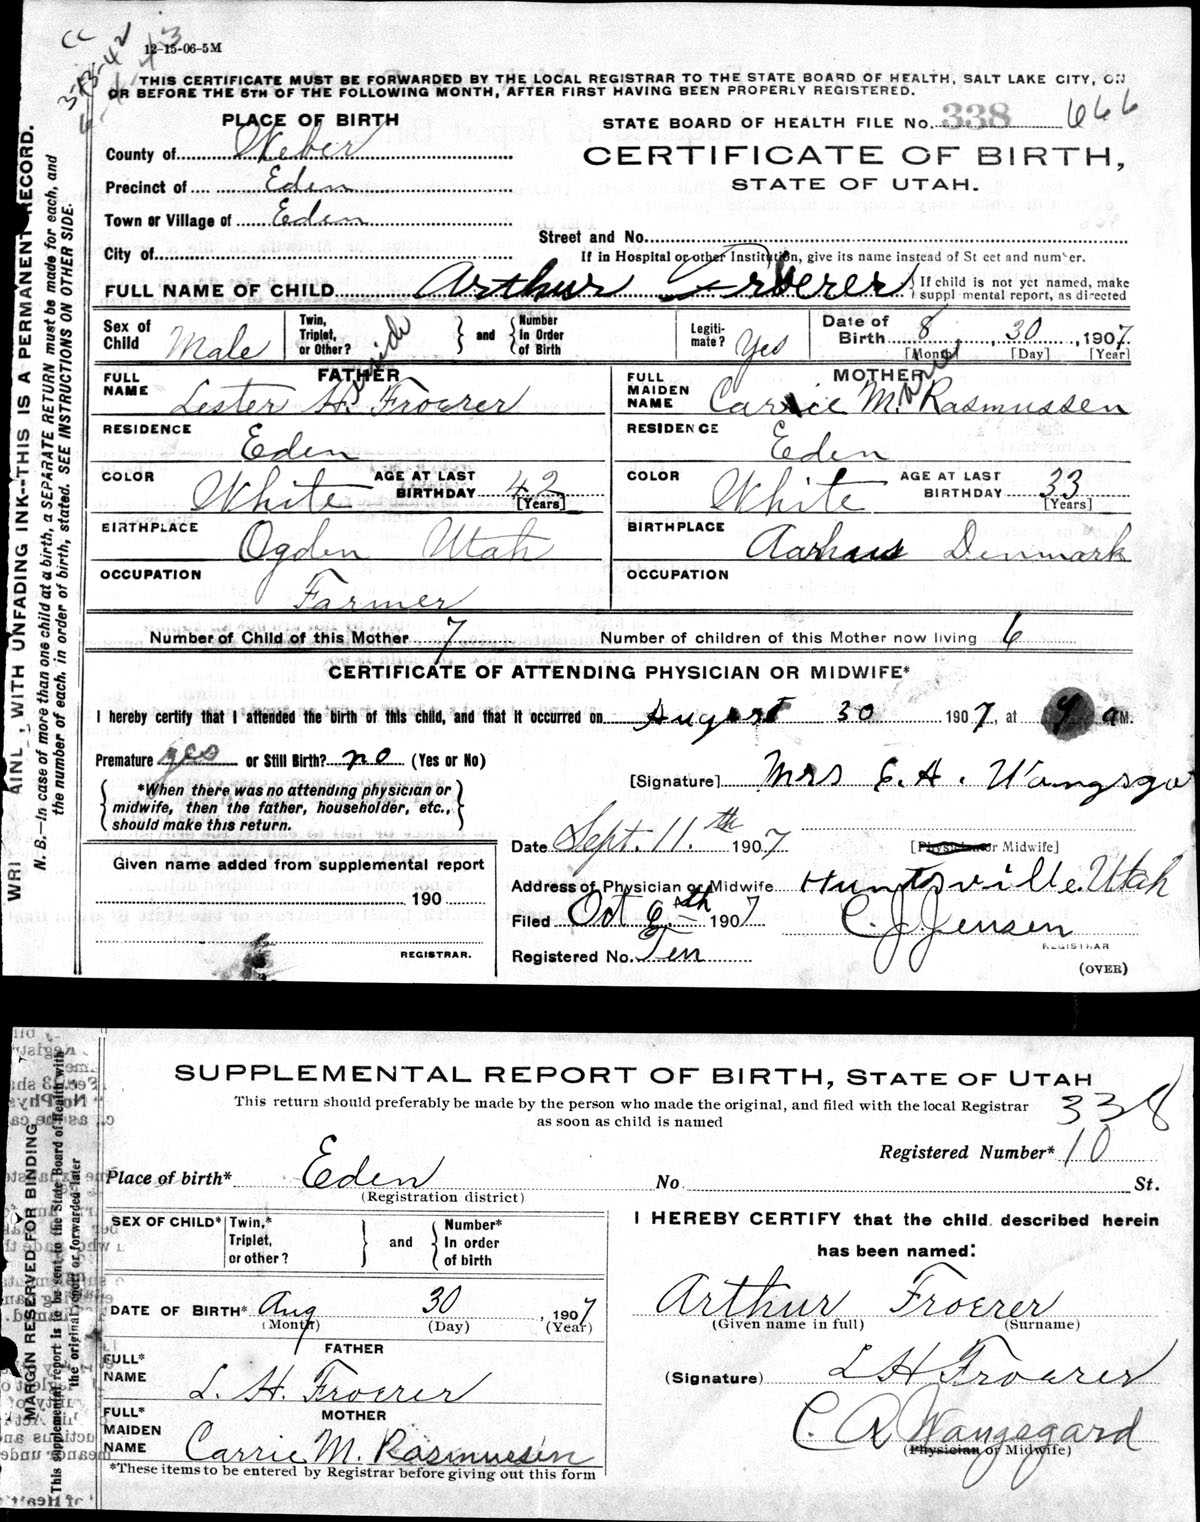 CC
3-13-42
12-15-06-5M
THIS CERTIFICATE MUST BE FORWARDED BY THE LOCAL REGISTRAR TO THE STATE BOARD OF HEALTH, SALT LAKE CITY, ON
OR BEFORE THE 5TH OF THE FOLLOWING MONTH, AFTER FIRST HAVING BEEN PROPERLY REGISTERED.
PLACE OF BIRTH
STATE BOARD OF HEALTH FILE No. 338 666
County of Weber
CERTIFICATE OF BIRTH,
STATE OF UTAH.
Precinct of Eden
Town or Village of Eden
Street and No.
City of
If in Hospital or other Institution, give its name instead of St eet and number.
FULL NAME OF CHILD Arthur Froerer { If child is not yet named, make
suppl mental report, as directed
Sex of Child Male
Twin, Triplet, or Other? } and { Number In Order of Birth
Legiti-mate? Yes
Date of Birth 8, 30, 1907
[Month] [Day] [Year]
FATHER
FULL NAME Lester H. Froerer
MOTHER
FULL MAIDEN NAME Carrie M. Rasmussen
RESIDENCE Eden
RESIDENCE Eden
COLOR White AGE AT LAST BIRTHDAY 42 [Years]
COLOR White AGE AT LAST BIRTHDAY 33 [Years]
BIRTHPLACE Ogden Utah
BIRTHPLACE Aarhaus Denmark
OCCUPATION Farmer
OCCUPATION
Number of Child of this Mother 7 Number of children of this Mother now living 6
CERTIFICATE OF ATTENDING PHYSICIAN OR MIDWIFE*
I hereby certify that I attended the birth of this child, and that it occurred on August 30 1907, at 9 a M.
Premature yes or Still Birth? no (Yes or No)
[Signature] Mrs E. A. Wangsga
{ *When there was no attending physician or
midwife, then the father, householder, etc.,
should make this return. }
Date Sept. 11.th 1907
[Physician or Midwife]
Given name added from supplemental report
190
REGISTRAR.
Address of Physician or Midwife Huntsville, Utah
Filed Oct 6.th 1907 C. J. Jensen
REGISTRAR
Registered No. Ten
(OVER)
AINL , WITH UNFADING INK--THIS IS A PERMANENT RECORD.
N. B.—In case of more than one child at a birth, a SEPARATE RETURN must be made for each, and
the number of each, in order of birth, stated. SEE INSTRUCTIONS ON OTHER SIDE.
SUPPLEMENTAL REPORT OF BIRTH, STATE OF UTAH
This return should preferably be made by the person who made the original, and filed with the local Registrar
as soon as child is named
338
Registered Number* 10
Place of birth* Eden No. St.
(Registration district)
SEX OF CHILD* Twin,* Triplet, or other? } and { Number* In order of birth
I HEREBY CERTIFY that the child described herein
has been named:
DATE OF BIRTH* Aug 30, 1907
(Month) (Day) (Year)
Arthur Froerer
(Given name in full) (Surname)
FATHER
FULL* NAME L. H. Froerer
(Signature) L H Froerer
MOTHER
FULL* MAIDEN NAME Carrie M. Rasmussen
C. A Wangsgard
(Physician or Midwife)
*These items to be entered by Registrar before giving out this form
MARGIN RESERVED FOR BINDING
This supplemental report is to be sent to the State Board of Health with
the original report or forwarded later